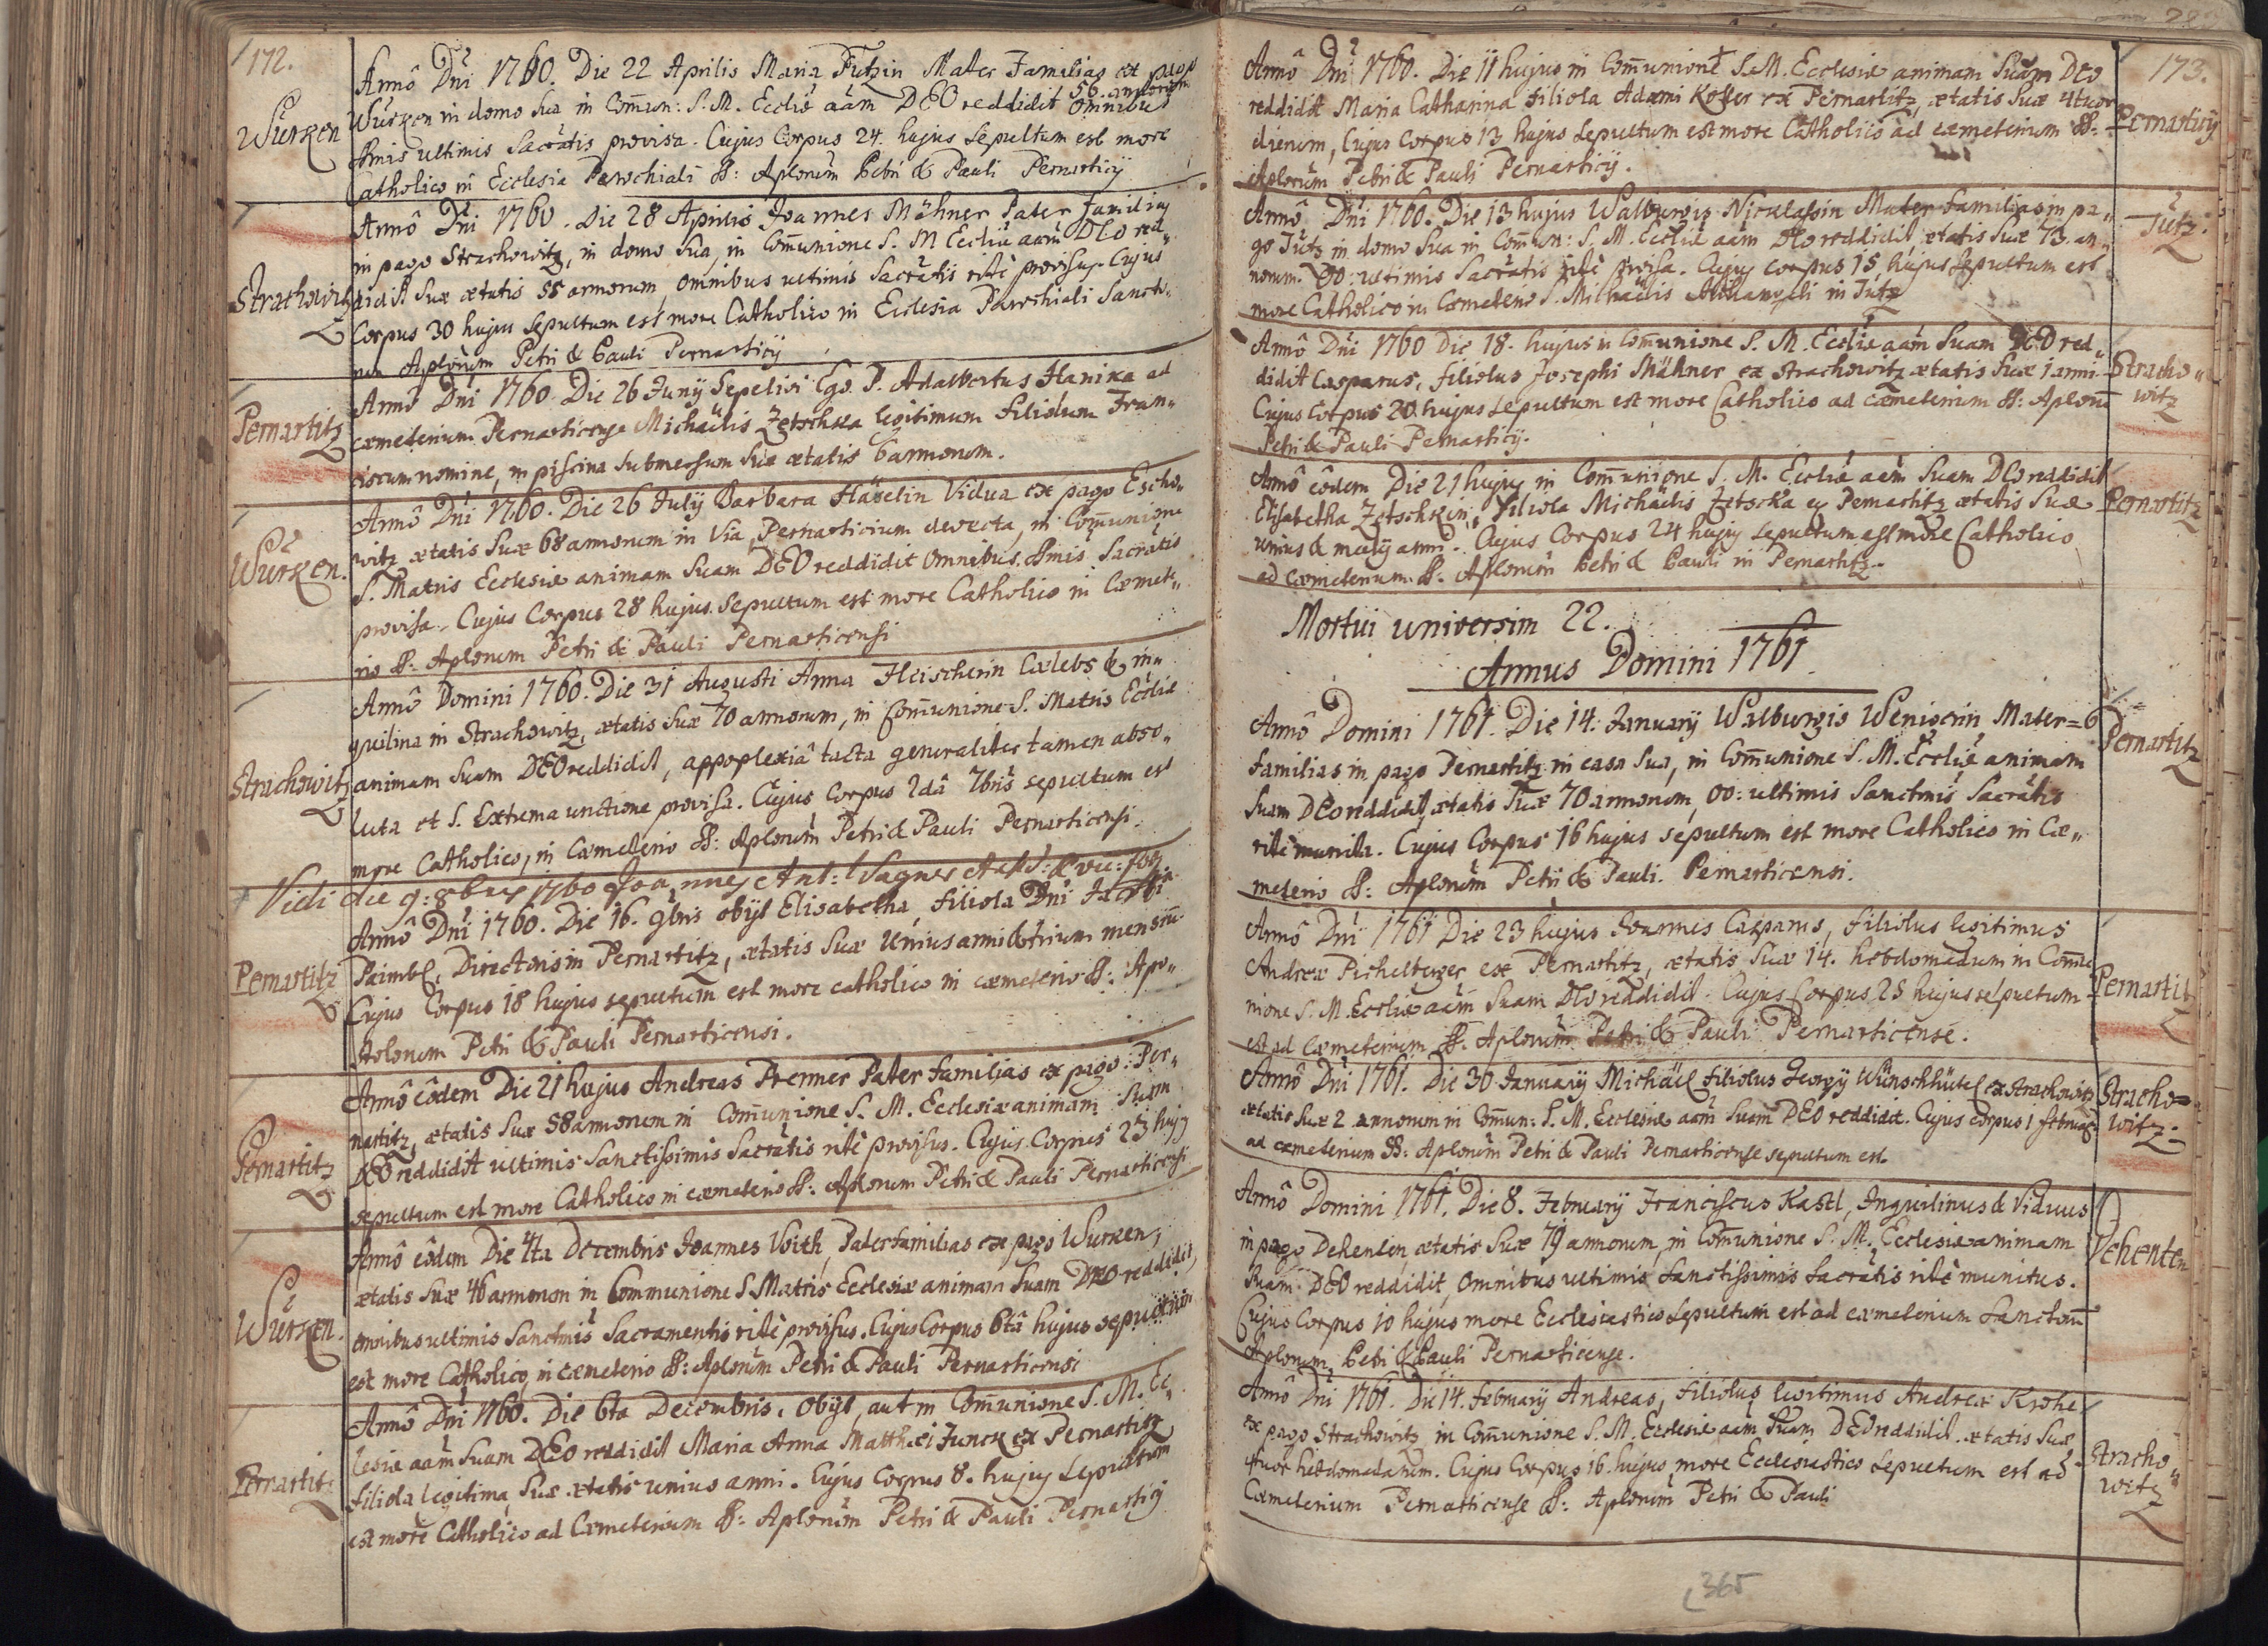 172.
Würken
Annô Dni 1760. Die 22 Aprilis Maria Futzin Mater Familias ex pago
56. annorum
Würken in domo sua in Comun: S. M. Eccliæ aam DEO reddidit omnibus
ssmis ultimis Sacratis provisa. Cujus Corpus 24. hujus sepultum est more
Catholico in Ecclesia Parochiali SS: Aplorum Petri & Pauli Pernarticij
Strachowitz
Annô Dni 1760. Die 28 Aprilis Joannes Mähner Pater Familias
in pago Strachowitz, in domo sua, in Comunione S. M Eccliæ aam DEO red„
didit suæ ætatis 55 annorum, omnibus ultimis Sacratis ritè provisus. Cujus
Corpus 30 hujus sepultum est more Catholico in Ecclesia Parochiali Sancto„
rum Aplorum Petri & Pauli Pernarticij
Pernartitz
Annô Dni 1760. Die 26 Junij Sepelivi Ego P. Adalbertus Hanika ad
cæmeterium Pernarticense Michaëlis Zetschka legitimum filiolum Fran„
ciscum nomine, in piscina submersum suæ ætatis 6 annorum.
Würken.
Annô Dni 1760. Die 26 Julij Barbara Häselin Vidua ex pago Escho„
witz ætatis suæ 68 annorum in Via, Pernarticium devecta, in Comunione
S. Matris Ecclesiæ animam suam DEO reddidit omnibus ssmis Sacratis
provisa. Cujus Corpus 28 hujus sepultum est more Catholico in Cæmet„
rio SS: Aplorum Petri & Pauli Pernarticensi
Strachowitz
Annô Domini 1760. Die 31 Augusti Anna Fleischerin Cælebs & in„
quilina in Strachowitz, ætatis suæ 70 annorum, in Comunione S. Matris Eccliæ
animam suam DEO reddidit, appoplexiâ tacta generaliter tamen abso„
luta et S. Extrema unctione provisa. Cujus Corpus 2dâ 7bris sepultum est
more Catholico, in Cæmeterio SS: Aplorum Petri & Pauli Pernarticensi.
Vidi die 9: 8bris 1760 Joannes Ant: Wagner
Pernartitz
Annô Dni 1760. Die 16. 9bris obijt Elisabetha, filiola Dni Jacobi
Paimbl, Directoris in Pernartitz, ætatis suæ Unius anni & trium mensium
Cujus Corpus 18 hujus sepultum est more catholico in cæmeterio SS: Apo„
stolorum Petri & Pauli Pernarticensi.
Pernartitz
Annô eôdem Die 21 hujus Andreas Prenner Pater familias ex pago Per„
nartitz, ætatis suæ 58 annorum in Comunione S. M. Ecclesiæ animam suam
DEO reddidit ultimis sanctissimis Sacratis ritè provisus. Cujus Corpus 23 hujus
sepultum est more Catholico in cæmeterio SS: Aplorum Petri & Pauli Pernarticensi
Würken.
Annô eôdem Die 4ta Decembris Joannes Voith, Paterfamilias ex pago Wurken,
ætatis suæ 46 annorum in Communione S. Matris Ecclesiæ animam suam DEO reddidit,
omnibus ultimis Sanctmis Sacramentis ritè provisus. Cujus Corpus 6tâ hujus sepultum
est more Catholico, in cæmeterio SS: Aplorum Petri & Pauli Pernarticensi
Pernartitz
Annô Dni 1760. Die 6ta Decembris. Obijt, aut in Comunione S. M. Ec„
clesiæ aam suam DEO reddidit Maria Anna Matthæi Junck ex Pernartitz
filiola legitima, suæ ætatis unius anni. Cujus Corpus 8. hujus sepultum
est more Catholico ad Cæmeterium SS: Aplorum Petri & Pauli Pernarticij
173.
Pernarticij
Annô Dni 1760. Die 11 hujus in Comunione S. M. Ecclesiæ animam suam DEO
reddidit Maria Catharina filiola Adami Koller ex Pernartitz, ætatis suæ 4tuor
dierum, Cujus Corpus 13 hujus sepultum est more Catholico ad cæmeterium SS:
Aplorum Petri & Pauli Pernarticij.
Jutz.
Annô Dni 1760. Die 13 hujus Walburgis Nicklassin Mater familias in pa„
go Jutz in domo sua in Comun: S. M. Eccliæ aam DEO reddidit, ætatis suæ 73. an„
norum. OO: ultimis Sacratis ritè provisa. Cujus Corpus 15 hujus sepultum est
more Catholico in Cæmeterio S. Michaëlis Archangeli in Jutz
Stracho„
witz
Annô Dni 1760 Die 18. hujus in Comunione S. M. Eccliæ aam suam DEO red„
didit Casparus, filiolus Josephi Mähner ex Strachowitz ætatis suæ 1 anni
Cujus Corpus 20. hujus sepultum est more Catholico ad cæmeterium SS: Aplorum
Petri & Pauli Pernarticij.
Pernartitz
Annô eôdem Die 21 hujus in Comunione S. M. Eccliæ aam suam DEO reddidit
Elisabetha Zetschkin, filiola Michaëlis Zetschka ex Pernartitz ætatis suæ
unius & medij anni. Cujus Corpus 24 hujus sepultum est more Catholico
ad cæmeterium SS. Aplorum Petri & Pauli in Pernartitz.
Mortui universim 22.
Annus Domini 1761.
Pernartitz
Annô Domini 1761. Die 14. January Walburgis Weniserin Mater=
familias in pago Pernartitz in casa sua, in Comunione S. M. Eccliæ animam
suam DEO reddidit, ætatis suæ 70 annorum, OO: ultimis Sanctmis Sacratis
ritè munita. Cujus Corpus 16 hujus sepultum est more Catholico in Cæ„
meterio SS: Aplorum Petri & Pauli. Pernarticensi.
Pernartitz
Annô Dni 1761 Die 23 hujus Joannis Casparus, filiolus legitimus
Andreæ Pichelberger ex Pernartitz, ætatis suæ 14. hebdomadum in Comu
nione S. M. Eccliæ aam suam DEO reddidit. Cujus Corpus 25 hujus sepultum
est ad Cæmeterium SS. Aplorum Petri & Pauli Pernarticense.
Stracho=
witz.
Annô Dni 1761. Die 30 January Michäel filiolus Georgij Wünschhütel ex Strachowitz
ætatis suæ 2 annorum in Comun: S. M. Ecclesiæ aam suam DEO reddidit. Cujus Corpus 1 februarij
ad cæmeterium SS: Aplorum Petri & Pauli Pernarticense sepultum est.
Dehenten
Annô Domini 1761. Die 8. February Franciscus Kastl, Inquilinus & Viduus
in pago Dehenten, ætatis suæ 79 annorum, in Comunione S. M. Ecclesiæ animam
suam DEO reddidit, omnibus ultimis sanctissimis sacratis ritè munitus.
Cujus Corpus 10 hujus more Ecclesiastico sepultum est ad cæmeterium Sanctorum
Aplorum Petri & Pauli Pernarticense.
Stracho„
witz
Annô Dni 1761. Die 14. February Andreas, filiolus legitimus Andreæ Krohe
ex pago Strachowitz in Comunione S. M. Ecclesiæ aam suam DEO reddidit. ætatis suæ
4tuor hebdomadarum. Cujus Corpus 16. hujus more Ecclesiastico sepultum est ad
Cæmeterium Pernarticense SS: Aplorum Petri & Pauli
365